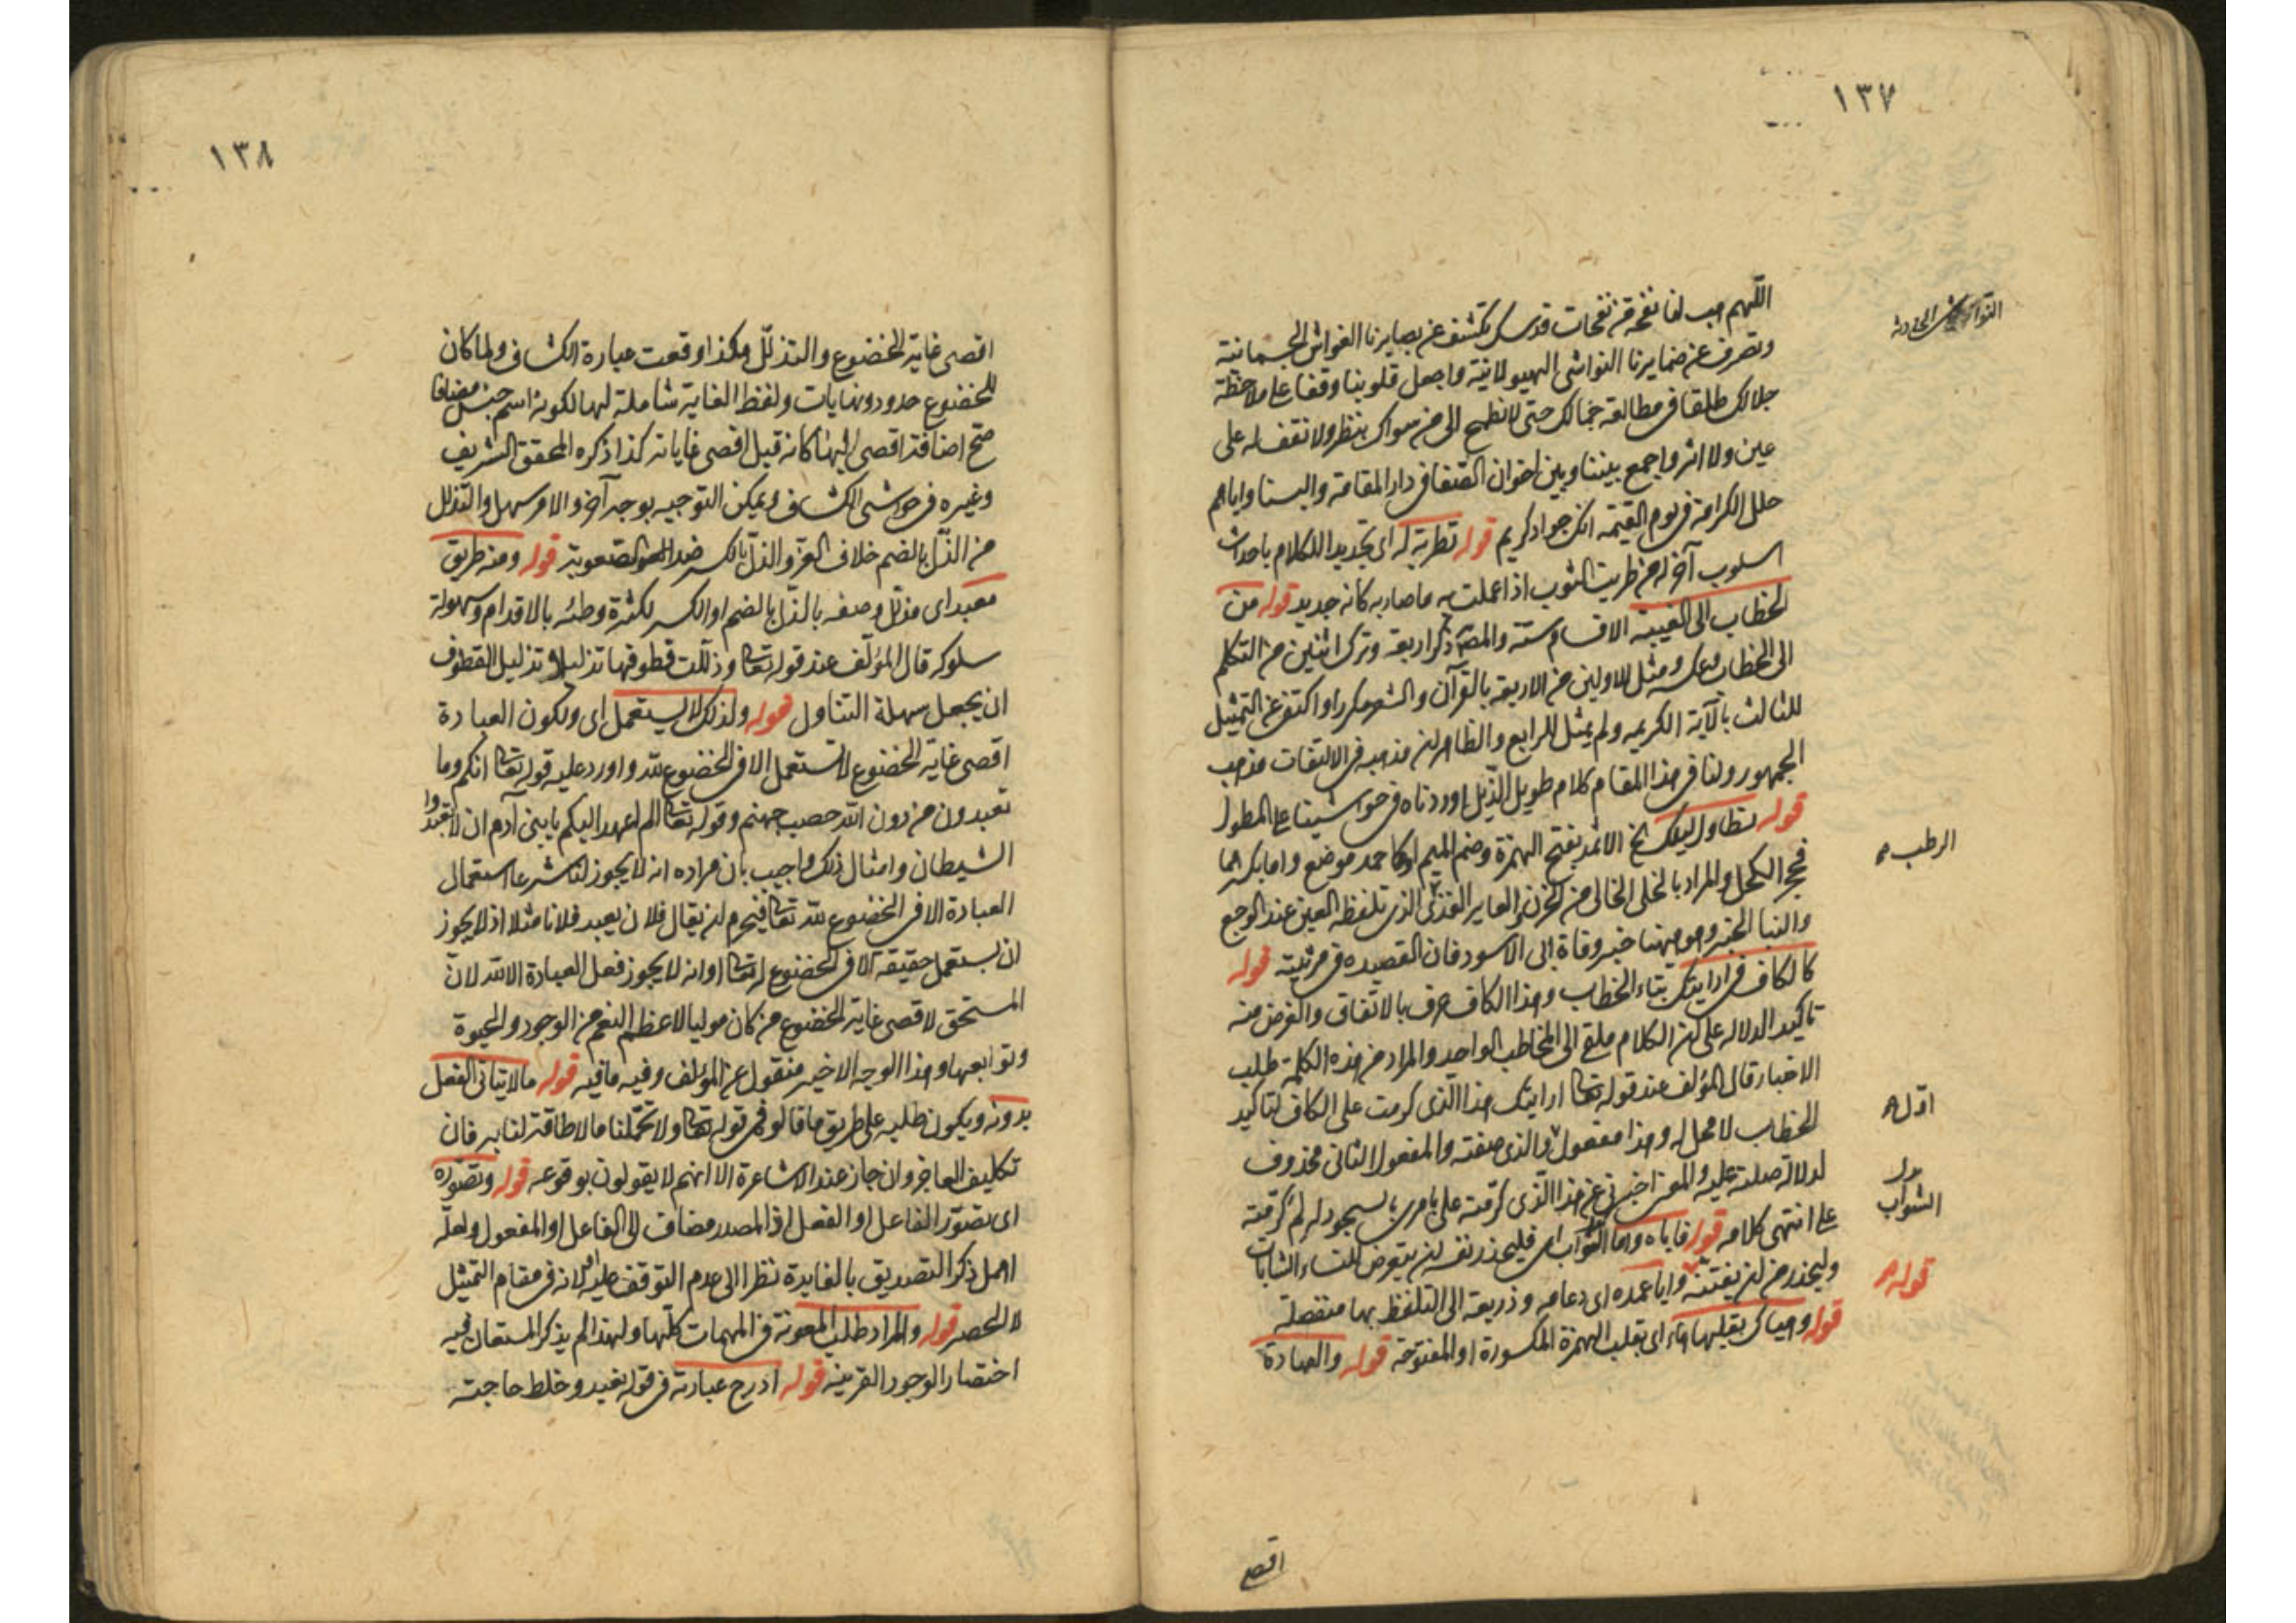 ١٣٧
اللهم هب لنا نفحة من نفحات قدسك تكشف عن بصايرنا الغواشى الجسمانية
وتصرف عن ضمايرنا النواشى الهيولانية واجعل قلوبنا وقفا على ملاحظة
جلالك طلقا فى مطالعة جمالك حتى لا نطمح الى من سواك بنظر ولا نقف له على
عين ولا اثر واجمع بيننا وبين اخوان الصفا فى دار المقامة والبسنا واياهم
حلل الكرامة فى يوم القيمة انك جواد كريم قوله تطرية له اى تجديدا للكلام باحداث
اسلوب آخر له من طريت الثوب اذا عملت به ما صار به كانه جديد قوله من
الخطاب الى الغيبة الاقسام ستة والمص ذكر اربعة وترك اثنين من التكلم
الى الخطاب وعكسه ومثل للاولين من الاربعة بالقرآن والشعر مكررا واكتفى عن التمثيل
للثالث بالآية الكريمه ولم يمثل للرابع والظاهر ان مذهبه فى الالتفات مذهب
الجمهور ولنا فى هذا المقام كلام طويل الذيل اوردناه فى حواشينا على المطول
قوله تطاول ليلك الخ الاثمد بفتح الهمزة وضم الميم او كاحمد موضع واما بكسرهما
فحجر الكحل والمراد بالخلى الخالى من الحزن والعاير القذى الذى تلفظه العين عند الوجع
والنبا الخبر وهو ههنا خبر وفاة ابى الاسود فان القصيده فى مرثيته قوله
كالكاف فى ارايتك بتاء الخطاب وهذا الكاف حرف بالاتفاق والغرض منه
تاكيد الدلاله على ان الكلام ملقى الى المخاطب الواحد والمراد من هذه الكلمة طلب
الاخبار قال المؤلف عند قوله تعا ارايتك هذا الذى كرمت على الكاف لتاكيد
الخطاب لا محل له وهذا مفعول والذى صفته والمفعول الثانى محذوف
لدلالة صلته عليه والمعنى اخبرنى عن هذا الذى كرمته على بامرى بالسجود له لم كرمته
على انتهى كلامه قوله فاياه وايا الشواب اى فليحذر نفسه ان يتعرض للنساء الشابات
وليحذر من ان يفتنه وايا عمده اى دعامه وذريعة الى التلفظ بها منفصلة
قوله وهياك بقلبها هاء اى بقلب الهمزة المكسورة او المفتوحة قوله والعبادة
الرطب
اول
بدل
الشواب
قوله
اقصى
١٣٨
اقصى غاية الخضوع والتذلل هكذا وقعت عبارة الكشاف ولما كان
للخضوع حدود ونهايات ولفظ الغاية شاملة لها لكونه اسم جنس مضافا
صح اضافة اقصى اليها كانه قيل اقصى غاياته كذا ذكره المحقق الشريف
وغيره فى حواشى الكشاف ويمكن التوجيه بوجه آخر والامر سهل والتذلل
من الذل بالضم خلاف العز والذل بالكسر ضد الصعوبة قوله ومنه طريق
معبد اى مذلل وصفه بالذل بالضم او الكسر لكثرة وطئه بالاقدام وسهولة
سلوكه قال المؤلف عند قوله تعا وذللت قطوفها تذليلا وتذليل القطوف
ان يجعل سهلة التناول قوله ولذلك لا يستعمل اى ولكون العبادة
اقصى غاية الخضوع لا تستعمل الا فى الخضوع لله واورد عليه قوله تعا انكم وما
تعبدون من دون الله حصب جهنم وقوله تعا الم اعهد اليكم يا بنى آدم ان لا تعبدوا
الشيطان وامثال ذلك واجيب بان مراده انه لا يجوز لنا شرعا استعمال
العبادة الا فى الخضوع لله تعا فيحرم ان يقال فلان يعبد فلانا مثلا اذ لا يجوز
ان يستعمل حقيقة الا فى الخضوع له تعا او انه لا يجوز فعل العبادة الا لله لان
المستحق لاقصى غاية الخضوع من كان موليا لاعظم النعم من الوجود والحيوة
وتوابعها وهذا الوجه الاخير منقول عن المؤلف وفيه ما فيه قوله ما لا يتاتى الفعل
بدونه ويكون طلبه على طريق ما قالوه فى قوله تعا ولا تحملنا ما لا طاقة لنا به فان
تكليف العاجز وان جاز عند الاشاعرة الا انهم لا يقولون بوقوعه قوله وتصوره
اى تصور الفاعل او الفعل اذ المصدر مضاف الى الفاعل او المفعول ولعله
اهمل ذكر التصديق بالفايدة نظرا الى عدم التوقف عليه او لانه فى مقام التمثيل
لا الحصر قوله والمراد طلب المعونة فى المهمات كلها ولهذا لم يذكر المستعان فيه
اختصارا لوجود القرينه قوله ادرج عبادته فى قوله نعبد وخلط حاجته